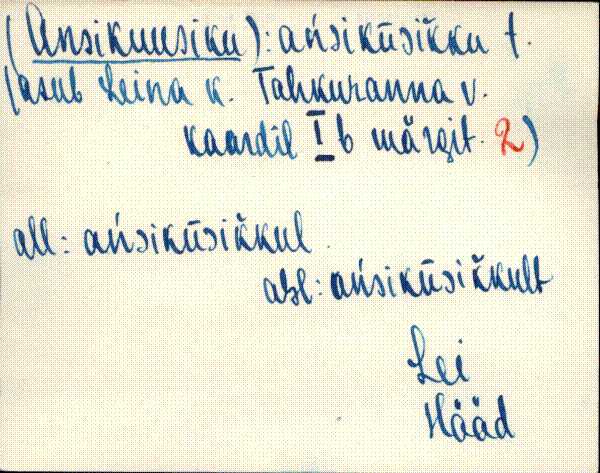 (Ansikuusiku): ańsikūsik̆ku t.
(asub Leina k. Tahkuranna v.
kaardil I b märgit. 2)
all: ańsikūsik̆kul.
abl: ańsikūsik̆kult
Lei
Hääd